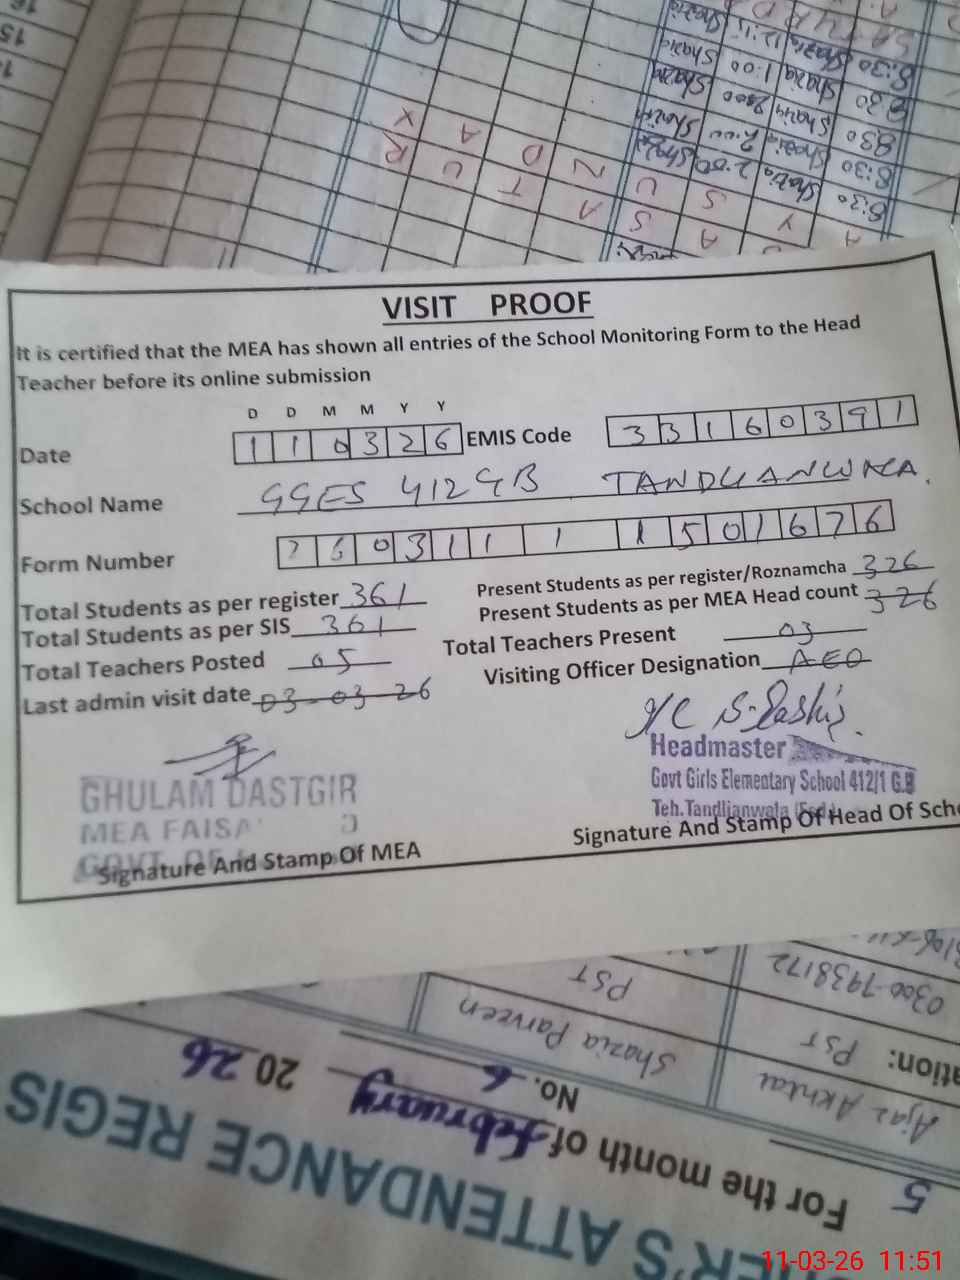 VISIT PROOF
It is certified that the MEA has shown all entries of the School Monitoring Form to the Head
Teacher before its online submission
D D M M Y Y
Date 1 1 0 3 2 6 EMIS Code 3 3 1 6 0 3 9 1
School Name GGES 412 GB TANDLIANWALA.
Form Number 2 6 0 3 1 1 1 1 5 0 1 6 7 6
Total Students as per register 361 Present Students as per register/Roznamcha 326
Total Students as per SIS 361 Present Students as per MEA Head count 326
Total Teachers Posted 05 Total Teachers Present 03
Last admin visit date 03-03-26 Visiting Officer Designation AEO
Headmaster
GHULAM DASTGIR Govt Girls Elementary School 412/1 G.B
MEA FAISA D Teh. Tandlianwala
Signature And Stamp Of MEA Signature And Stamp Of Head Of Scho
0300-7938172
PST
Shazia Parveen
ation: PST
Ajaz Akhtar
No. 6
For the month of February 2026
5
ER'S ATTENDANCE REGIS
8:30 Shazia 12:15 Shazia
8:30 Shazia 1:00 Shazia
830 Shazia 2:00 Shazia
8:30 Shazia 2:00 Shazia
8:30 Shazia 2:00 Shazia
S U N D A Y
S A T U R
15
16
11-03-26 11:51